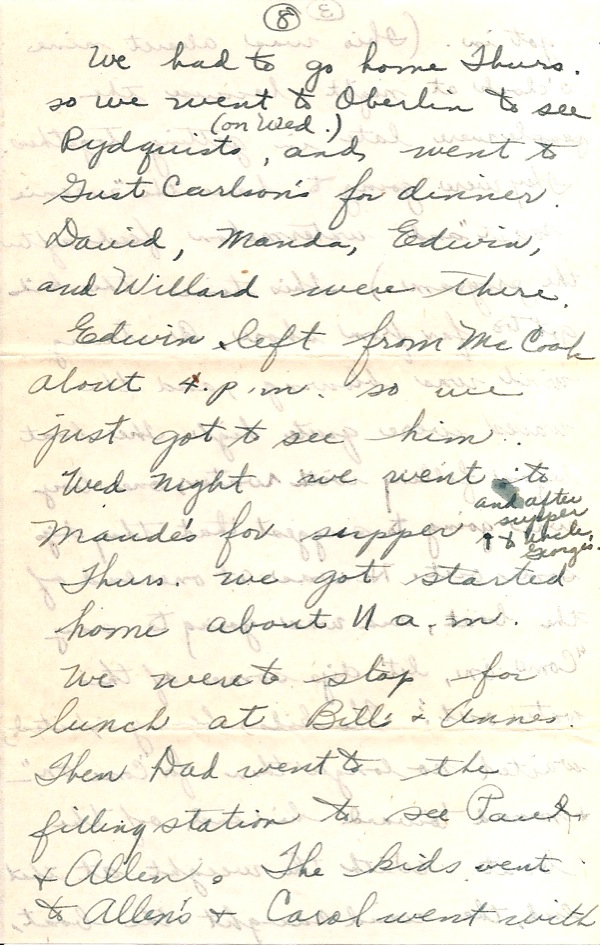 8
We had to go home Thurs.
so we went to Oberlin to see
(on Wed.)
Rydquists, and went to
Gust Carlson's for dinner.
David, Manda, Edwin,
and Willard were there.
Edwin left from Mc Cook
about 4. p.m. so we
just got to see him.
Wed night we went to
Maude's for supper ↑ and after
supper
to Uncle
George's.
Thurs. we got started
home about 11 a.m.
We were to stop for
lunch at Bill's & Annes.
Then Dad went to the
filling station to see Paul
& Allen. The kids went
to Allen's & Carol went with